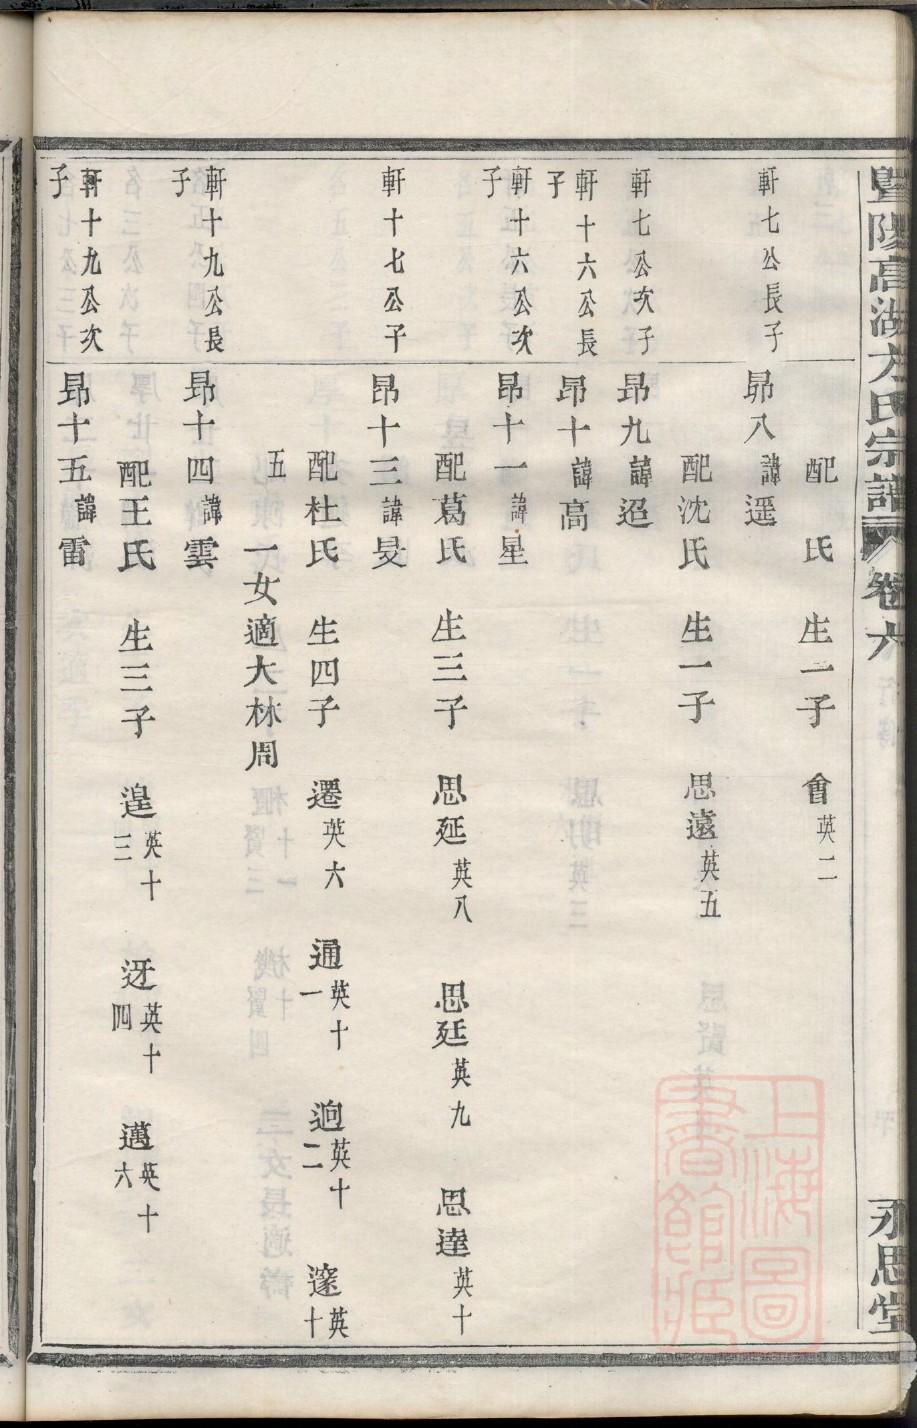 暨陽高湖方氏宗譜 卷六 永思堂
配 氏 生一子 會英二
軒七公長子 昴八諱遥
配沈氏 生一子 思遠英五
軒七公次子 昂九諱迢
軒十六公長子 昂十諱高
軒十六公次子 昂十一諱星
配葛氏 生三子 思延英八 思廷英九 思達英十
軒十七公子 昂十三諱旻
配杜氏 生四子 遷英六 通英十一 逈英十二 邃英十
五 一女適大林周
軒十九公長子 昂十四諱雲
配王氏 生三子 遑英十三 迓英十四 邁英十六
軒十九公次子 昂十五諱雷
上海圖書館藏